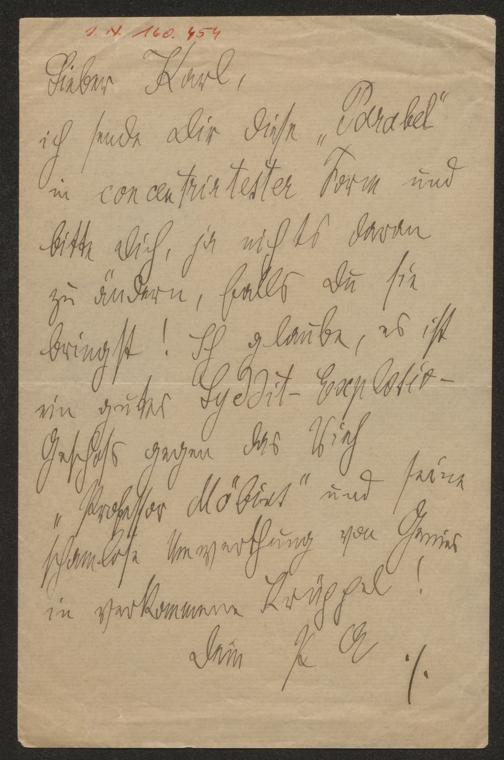 I. N. 160.454
Lieber Karl,
ich sende Dir diese „Parabel“
in concentrirtester Form und
bitte Dich, ja nichts daran
zu ändern, falls Du sie
bringst! Ich glaube, es ist
ein gutes Lyddit-Explosiv-
Geschoss gegen das Vieh
„Professor Möbius“ und seine
schamlose Umwerthung von Genies
in verkommene Krüppel!
Dein P A
./.